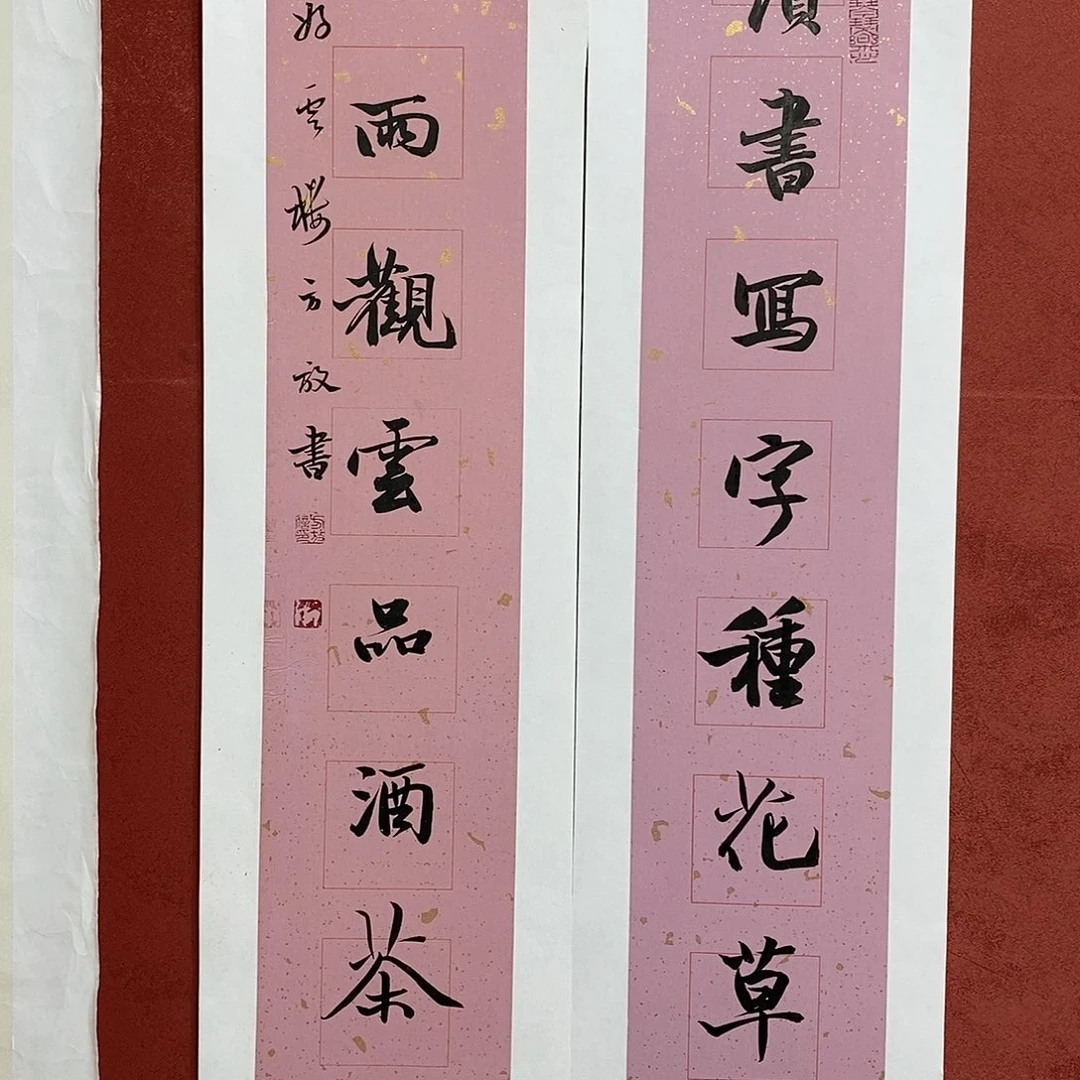 書寫字種花草
雨觀雲品酒茶
好雲樓方放書